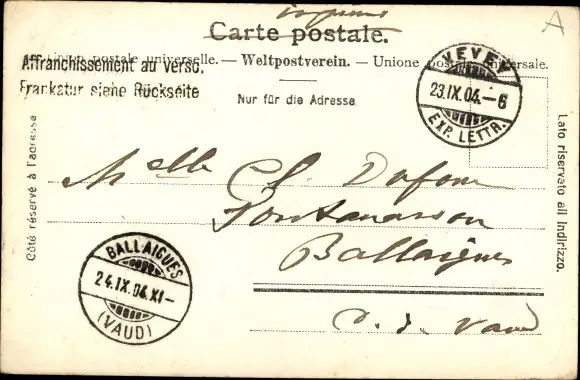 Imprimé
A
Carte postale.
Union postale universelle. — Weltpostverein. — Unione postale universale.
Affranchissement au verso.
Frankatur siehe Rückseite
Nur für die Adresse
VEVEY
23.IX.04.–6
EXP. LETTR.
Côté réservé à l'adresse
Lato riservato all indirizzo.
Melle Ch. Dufour
Ballaigues
C. d. Vaud
BALLAIGUES
24.IX.04.XI–
(VAUD)